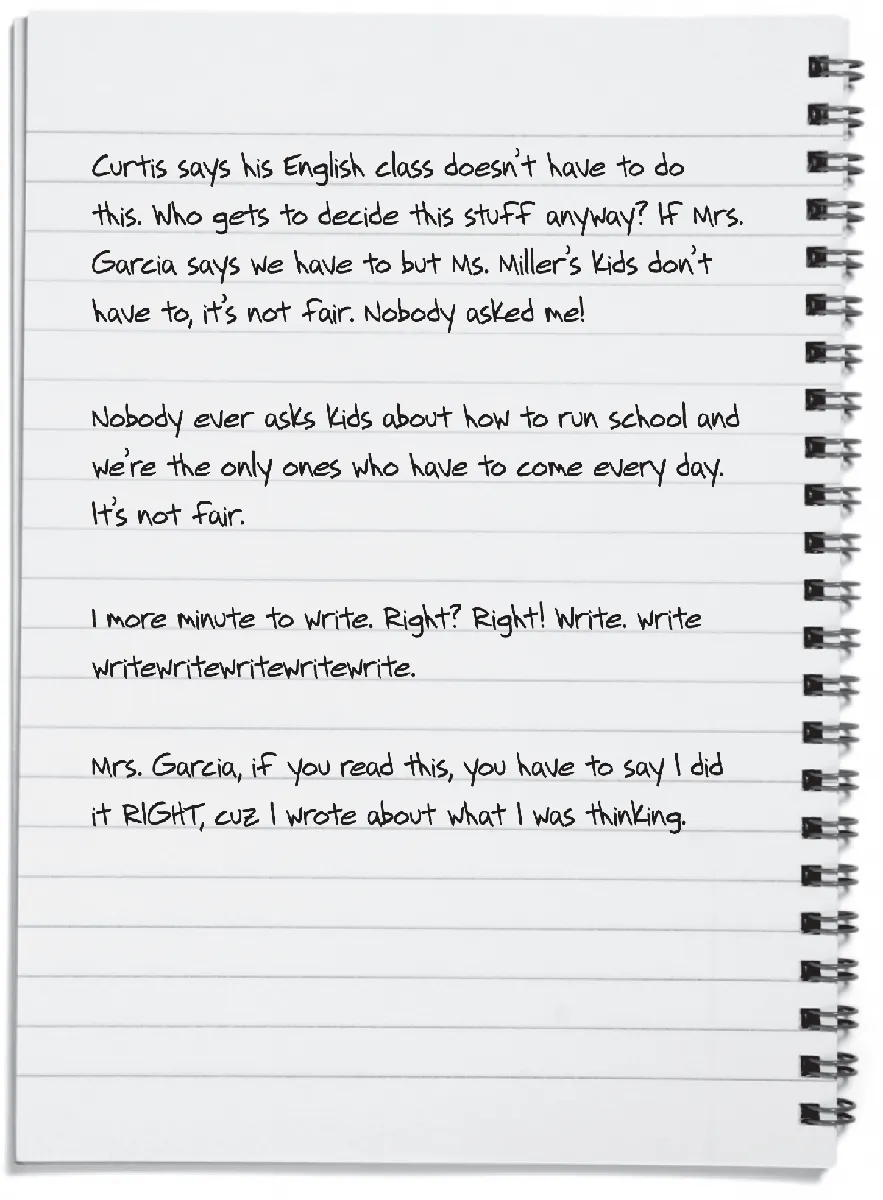 Curtis says his English class doesn't have to do
this. Who gets to decide this stuff anyway? If Mrs.
Garcia says we have to but Ms. Miller's kids don't
have to, it's not fair. Nobody asked me!
Nobody ever asks kids about how to run school and
we're the only ones who have to come every day.
It's not fair.
1 more minute to write. Right? Right! Write. write
writewritewritewritewrite.
Mrs. Garcia, if you read this, you have to say I did
it RIGHT, cuz I wrote about what I was thinking.